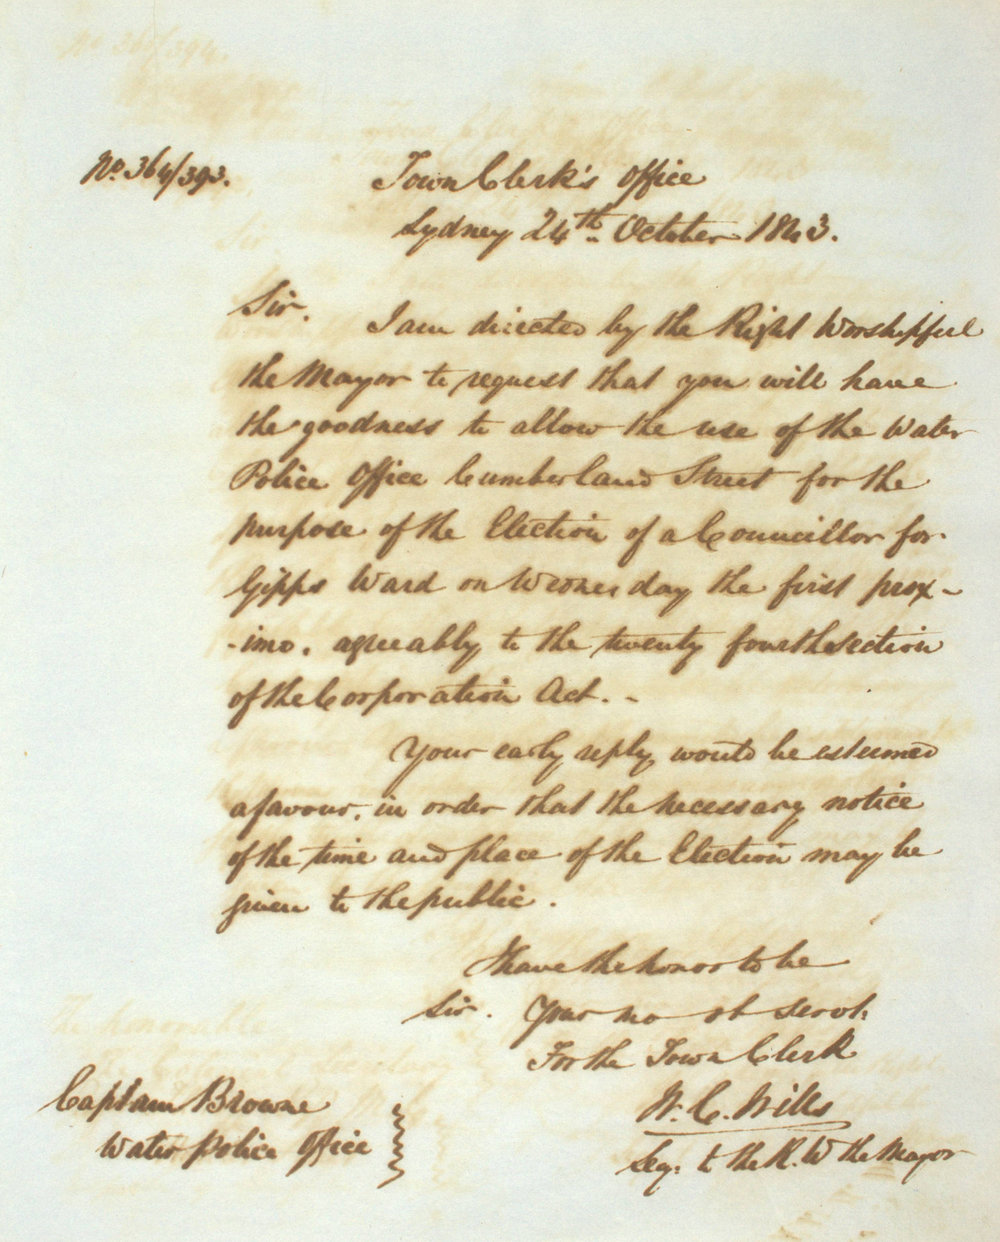 No. 364/393.
Town Clerk's Office
Sydney 24th. October 1843.
Sir.
I am directed by the Right Worshipful
the Mayor to request that you will have
the goodness to allow the use of the Water
Police Office Cumberland Street for the
purpose of the Election of a Councillor for
Gipps Ward on Wednesday the first prox-
-imo, agreeably to the twenty fourth section
of the Corporation Act. -
Your early reply would be esteemed
a favour, in order that the necessary notice
of the time and place of the Election may be
given to the public.
I have the honor to be
Sir. Your mo ob servt.
For the Town Clerk
W. C. Wills
Secy. to the R. W the Mayor
Captain Browne
Water Police Office